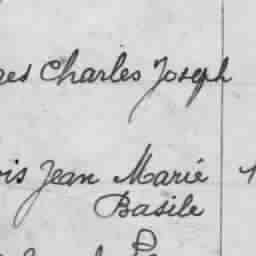 Charles Joseph
Jean Marie
Basile